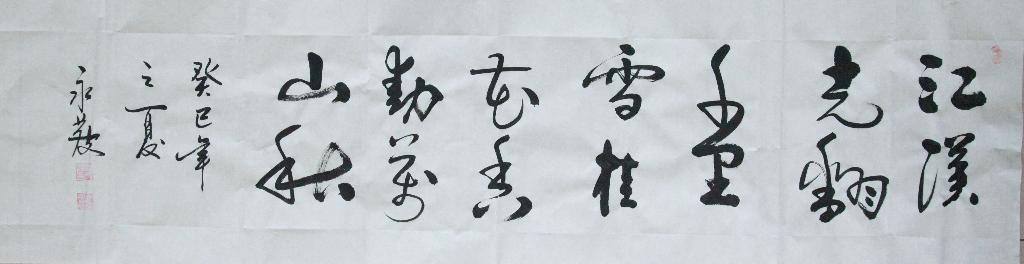 江漢
光翻
千里
雪桂
花香
動萬
山秋
癸巳年
之夏
永欽